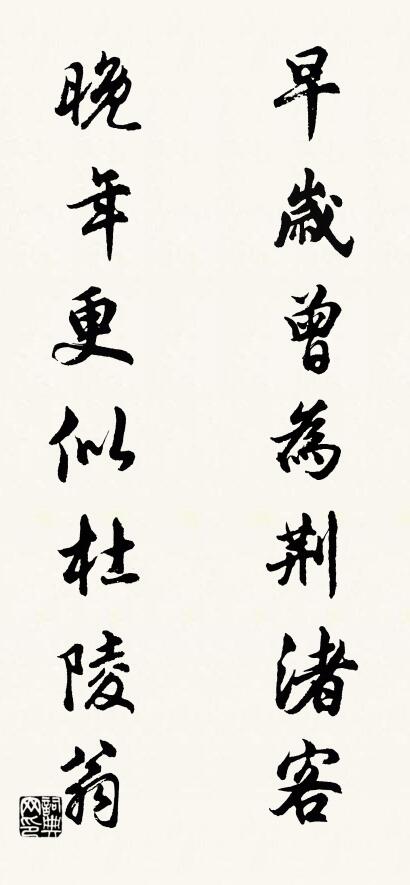 早歲曾為荆渚客
晚年更似杜陵翁
詞典網印